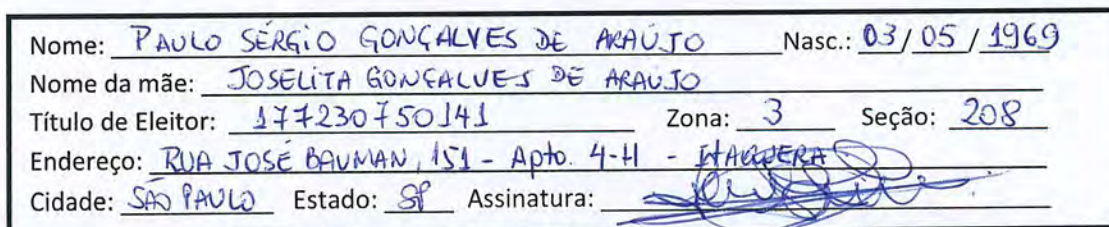 Nome: PAULO SÉRGIO GONÇALVES DE ARAÚJO Nasc.: 03/05/1969
Nome da mãe: JOSELITA GONÇALVES DE ARAUJO
Título de Eleitor: 177230750141 Zona: 3 Seção: 208
Endereço: RUA JOSÉ BAUMAN, 151 - Apto. 4-H - ITAQUERA
Cidade: SÃO PAULO Estado: SP Assinatura: